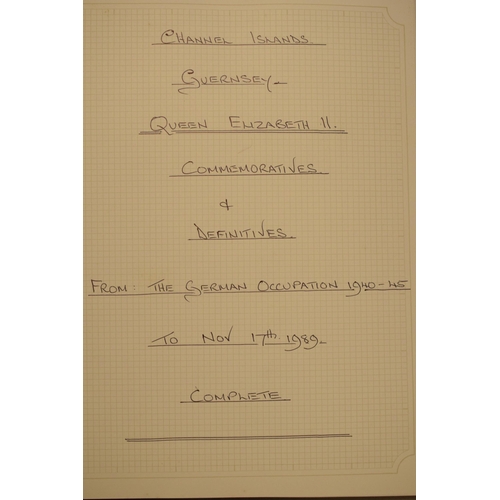 CHANNEL ISLANDS
GUERNSEY-
QUEEN ELIZABETH II.
COMMEMORATIVES.
&
DEFINITIVES.
FROM: THE GERMAN OCCUPATION 1940-45
TO NOV 17th 1989.
COMPLETE